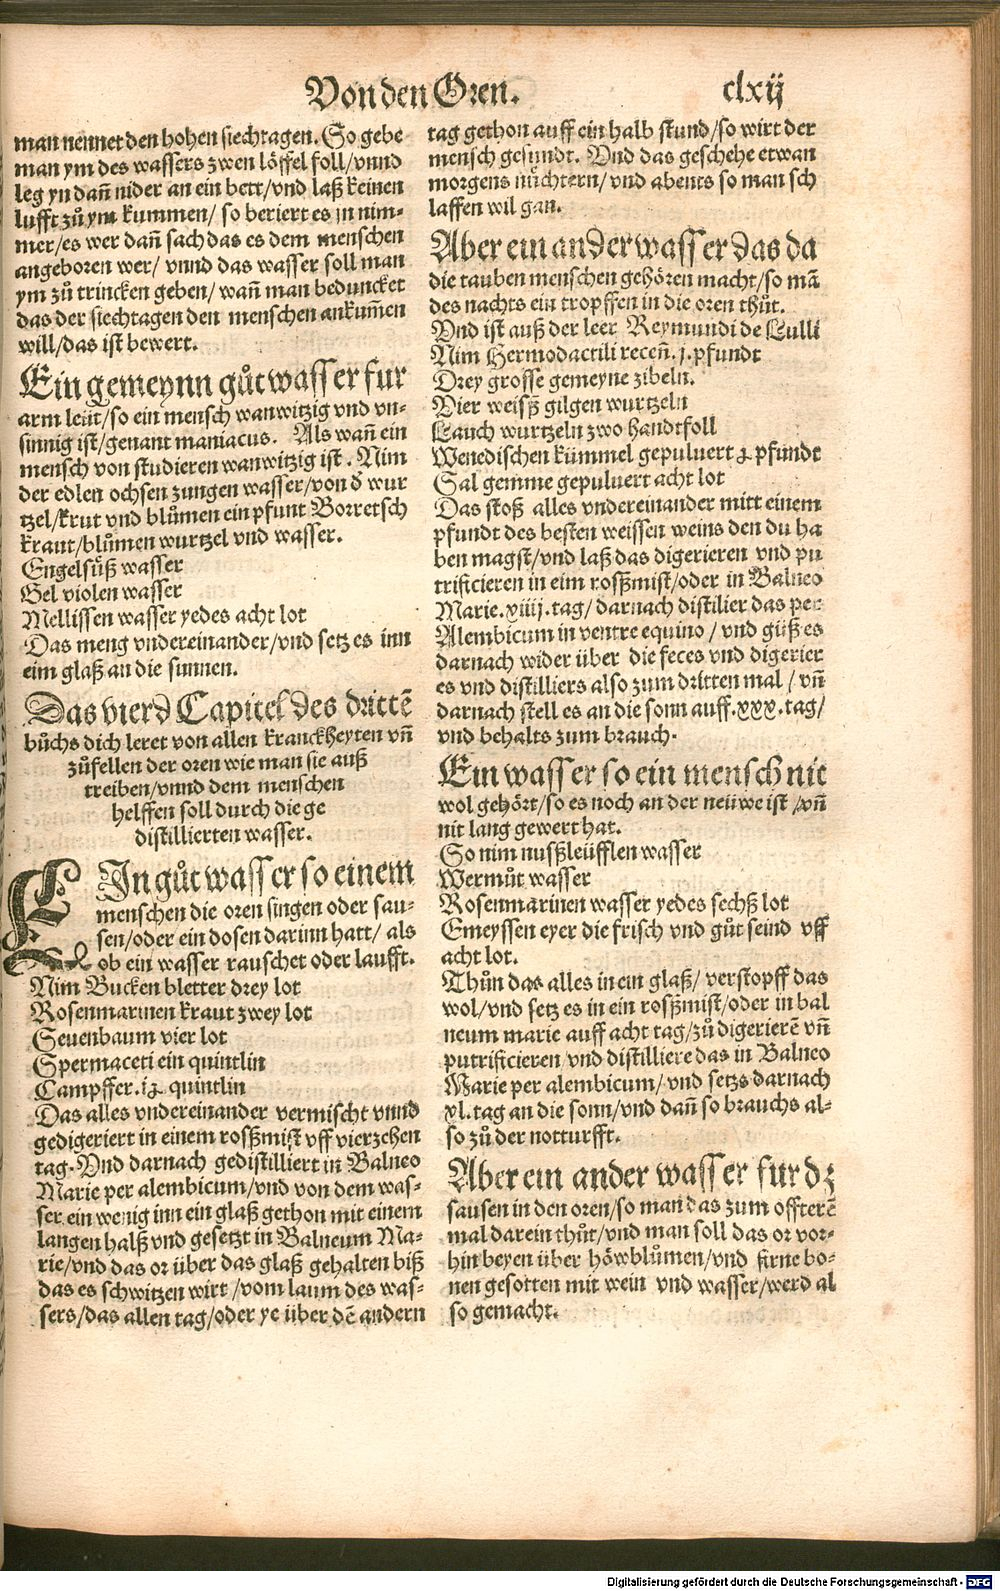 Von den Oren. clxij
man nennet den hohen siechtagen. So gebe
man ym des wassers zwen löffel foll/vnnd
leg yn dañ nider an ein bett/vnd laß keinen
lufft zů ym kummen/ so beriert es jn nim-
mer/es wer dañ sach das es dem menschen
angeboren wer/ vnnd das wasser soll man
ym zů trincken geben/ wañ man beduncket
das der siechtagen den menschen ankum̃en
will/das ist bewert.
Ein gemeynn gůt wasser fur
arm leüt/so ein mensch wanwitzig vnd vn-
sinnig ist/genant maniacus. Als wañ ein
mensch von studieren wanwitzig ist. Nim
der edlen ochsen zungen wasser/von d̉ wur
tzel/krut vnd blůmen ein pfunt Borretsch
kraut/blůmen wurtzel vnd wasser.
Engelsüß wasser
Gel violen wasser
Mellissen wasser yedes acht lot
Das meng vndereinander/vnd setz es inn
eim glaß an die sunnen.
Das vierd Capitel des drittē
bůchs dich leret von allen kranckheyten vñ
zůfellen der oren wie man sie auß
treiben/vnnd dem menschen
helffen soll durch die ge
distillierten wasser.
EIn gůt wasser so einem
menschen die oren singen oder sau-
sen/oder ein dosen darinn hatt/ als
ob ein wasser rauschet oder laufft.
Nim Bucken bletter drey lot
Rosenmarinen kraut zwey lot
Seuenbaum vier lot
Spermaceti ein quintlin
Campffer. quintlin
Das alles vndereinander vermischt vnnd
gedigeriert in einem roßmist vff vierzehen
tag. Vnd darnach gedistilliert in Balneo
Marie per alembicum/vnd von dem was-
ser ein wenig inn ein glaß gethon mit einem
langen halß vnd gesetzt in Balneum Ma-
rie/vnd das or über das glaß gehalten biß
das es schwitzen wirt/vom laum des was-
sers/das allen tag/oder ye über dē andern
tag gethon auff ein halb stund/so wirt der
mensch gesundt. Vnd das geschehe etwan
morgens nüchtern/ vnd abents so man sch
laffen wil gan.
Aber ein ander wasser das da
die tauben menschen gehören macht/so mā
des nachts ein tropffen in die oren thůt.
Vnd ist auß der leer Reymundi de Lulli
Nim Hermodactili receñ. j. pfundt
Drey grosse gemeyne zibeln.
Vier weisß gilgen wurtzeln
Lauch wurtzeln zwo handtfoll
Wenedischen kümmel gepuluert pfundt
Sal gemme gepuluert acht lot
Das stoß alles vndereinander mitt einem
pfundt des besten weissen weins den du ha
ben magst/vnd laß das digerieren vnd pu
trificieren in eim rosßmist/oder in Balneo
Marie. xiiij. tag/ darnach distilier das per
Alembicum in ventre equino / vnd güß es
darnach wider über die feces vnd digerier
es vnd distilliers also zum dritten mal / vñ
darnach stell es an die sonn auff. xxx. tag/
vnd behalts zum brauch.
Ein wasser so ein mensch nit
wol gehört/so es noch an der neüwe ist /vñ
nit lang gewert hat.
So nim nusßleüfflen wasser
Wermůt wasser
Rosenmarinen wasser yedes sechß lot
Emeyssen eyer die frisch vnd gůt seind vff
acht lot.
Thůn das alles in ein glaß/ verstopff das
wol/vnd setz es in ein rosßmist/oder in bal
neum marie auff acht tag/zů digerierē vñ
putrificieren/vnd distilliere das in Balneo
Marie per alembicum/vnd setzs darnach
xl. tag an die sonn/vnd dañ so brauchs al-
so zů der notturfft.
Aber ein ander wasser fur dz
sausen in den oren/so man das zum offterē
mal darein thůt/vnd man soll das or vor-
hin beyen über höwblůmen/vnd firne bo-
nen gesotten mit wein vnd wasser/werd al
so gemacht.
Digitalisierung gefördert durch die Deutsche Forschungsgemeinschaft - DFG